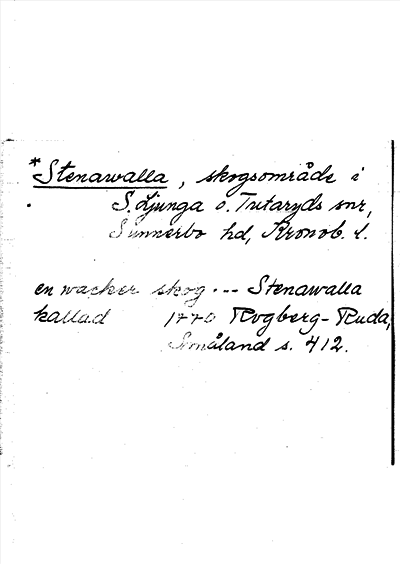 *Stenawalla, skogsområde i
S. Ljunga o. Tutaryds snr,
Sunnerbo hd, Kronob. l.
en wacker skog --- Stenawalla
kallad 1770 Rogberg-Ruda,
Småland s. 412.